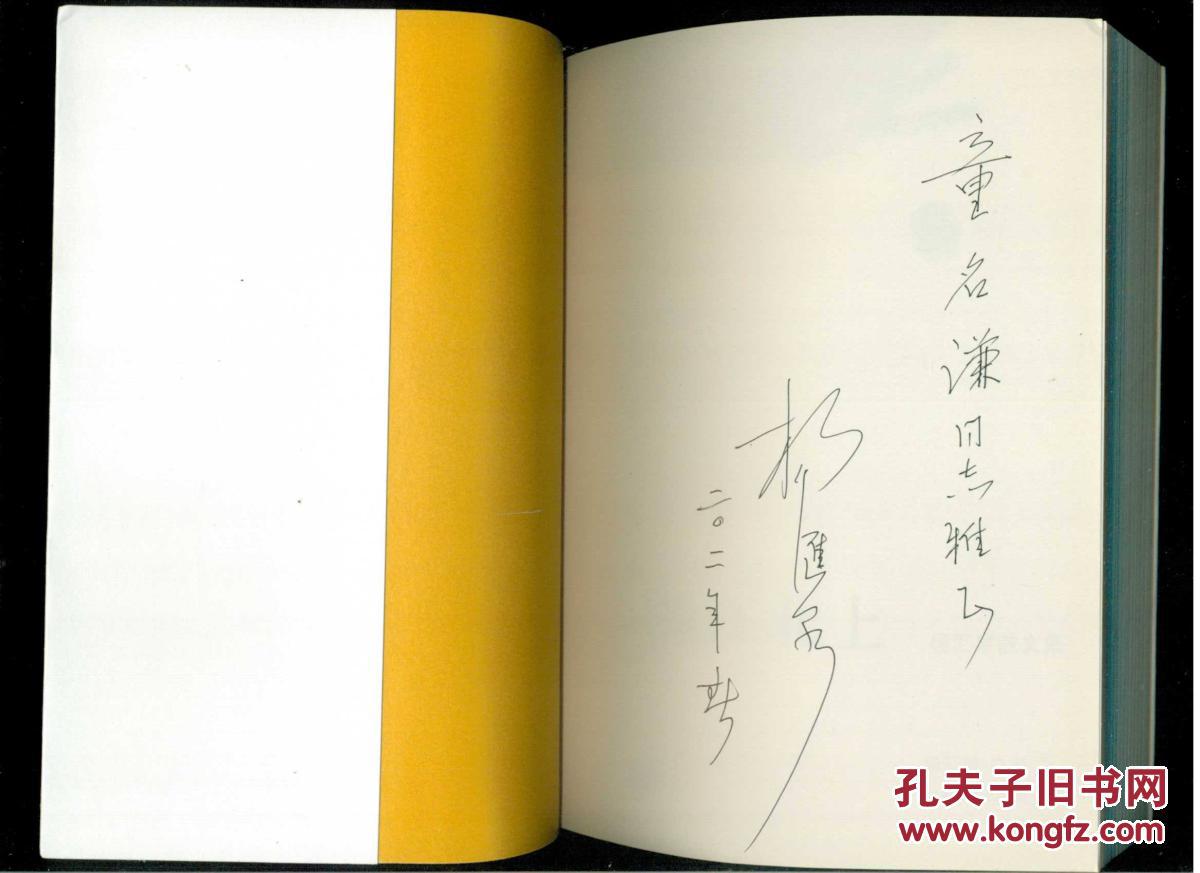 童名谦同志雅正
杨汇泉
二〇〇二年春
孔夫子旧书网
www.kongfz.com